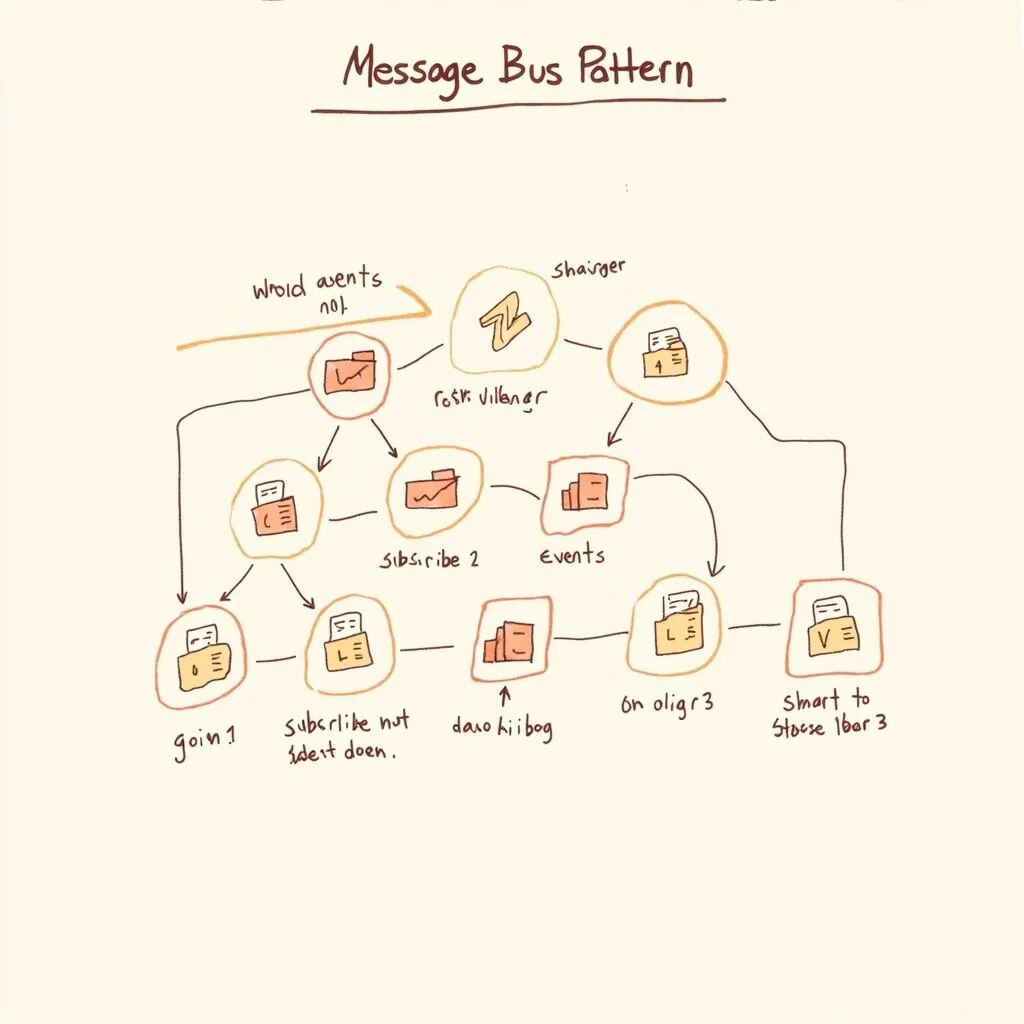 Message Bus Pattern
Whold avents
not
Shairger
rosk Villangr
Subscribe 2
Events
goin 1
Subscrlibe nut
Sdest doen.
davo hiibog
On oligr 3
Shart to
Stoese lbor 3